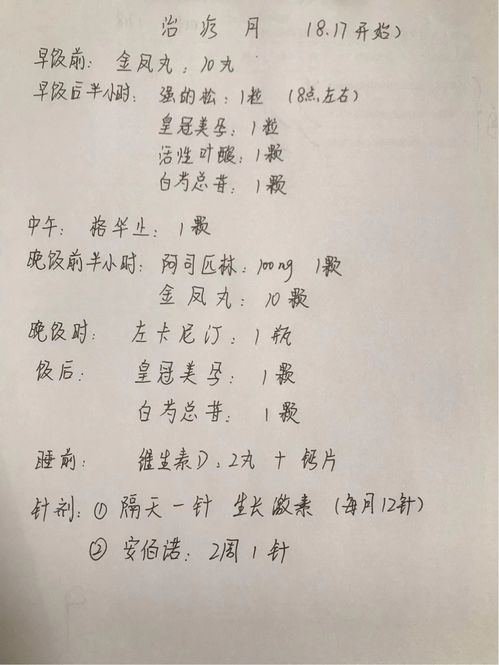 治疗月 (8.17开始)
早饭前: 金凤丸: 10丸
早饭后半小时: 强的松: 1粒 (8点左右)
皇冠美孕: 1粒
活性叶酸: 1颗
白芍总苷: 1颗
中午: 格华止: 1颗
晚饭前半小时: 阿司匹林: 100mg 1颗
金凤丸: 10颗
晚饭时: 左卡尼汀: 1瓶
饭后: 皇冠美孕: 1颗
白芍总苷: 1颗
睡前: 维生素D: 2丸 + 钙片
针剂: ① 隔天一针 生长激素 (每月12针)
② 安佰诺: 2周1针